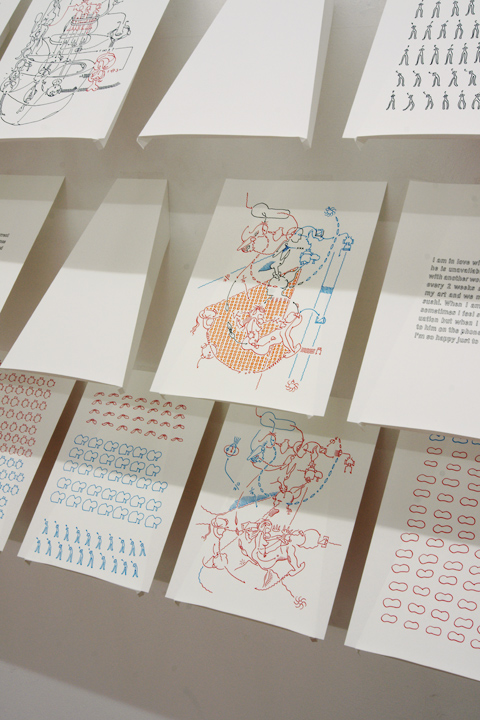 I am in love wi
he is unavailab
with another wo
every 2 weeks
my art and we m
sushi. When I am
sometimes I feel s
uation but when I
to him on the phone
I'm so happy just to